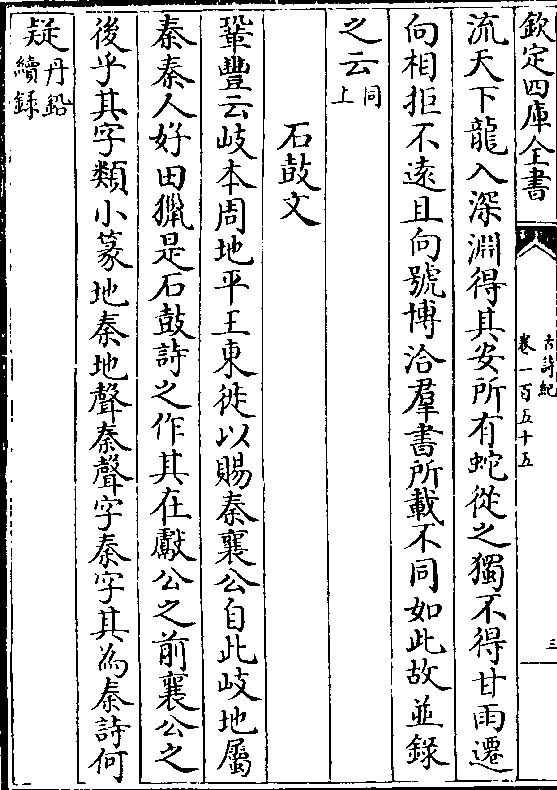 欽定四庫全書
古詩紀
卷一百五十五
三
流天下龍入深淵得其安所有蛇從之獨不得甘雨遷
向相拒不逺且向號博洽羣書所載不同如此故並錄
之云同上
石鼓文
鞏豐云岐本周地平王東徙以賜秦襄公自此岐地屬
秦秦人好田獵是石鼓詩之作其在獻公之前襄公之
後乎其字類小篆地秦地聲秦聲字秦字其為秦詩何
疑丹鉛續録